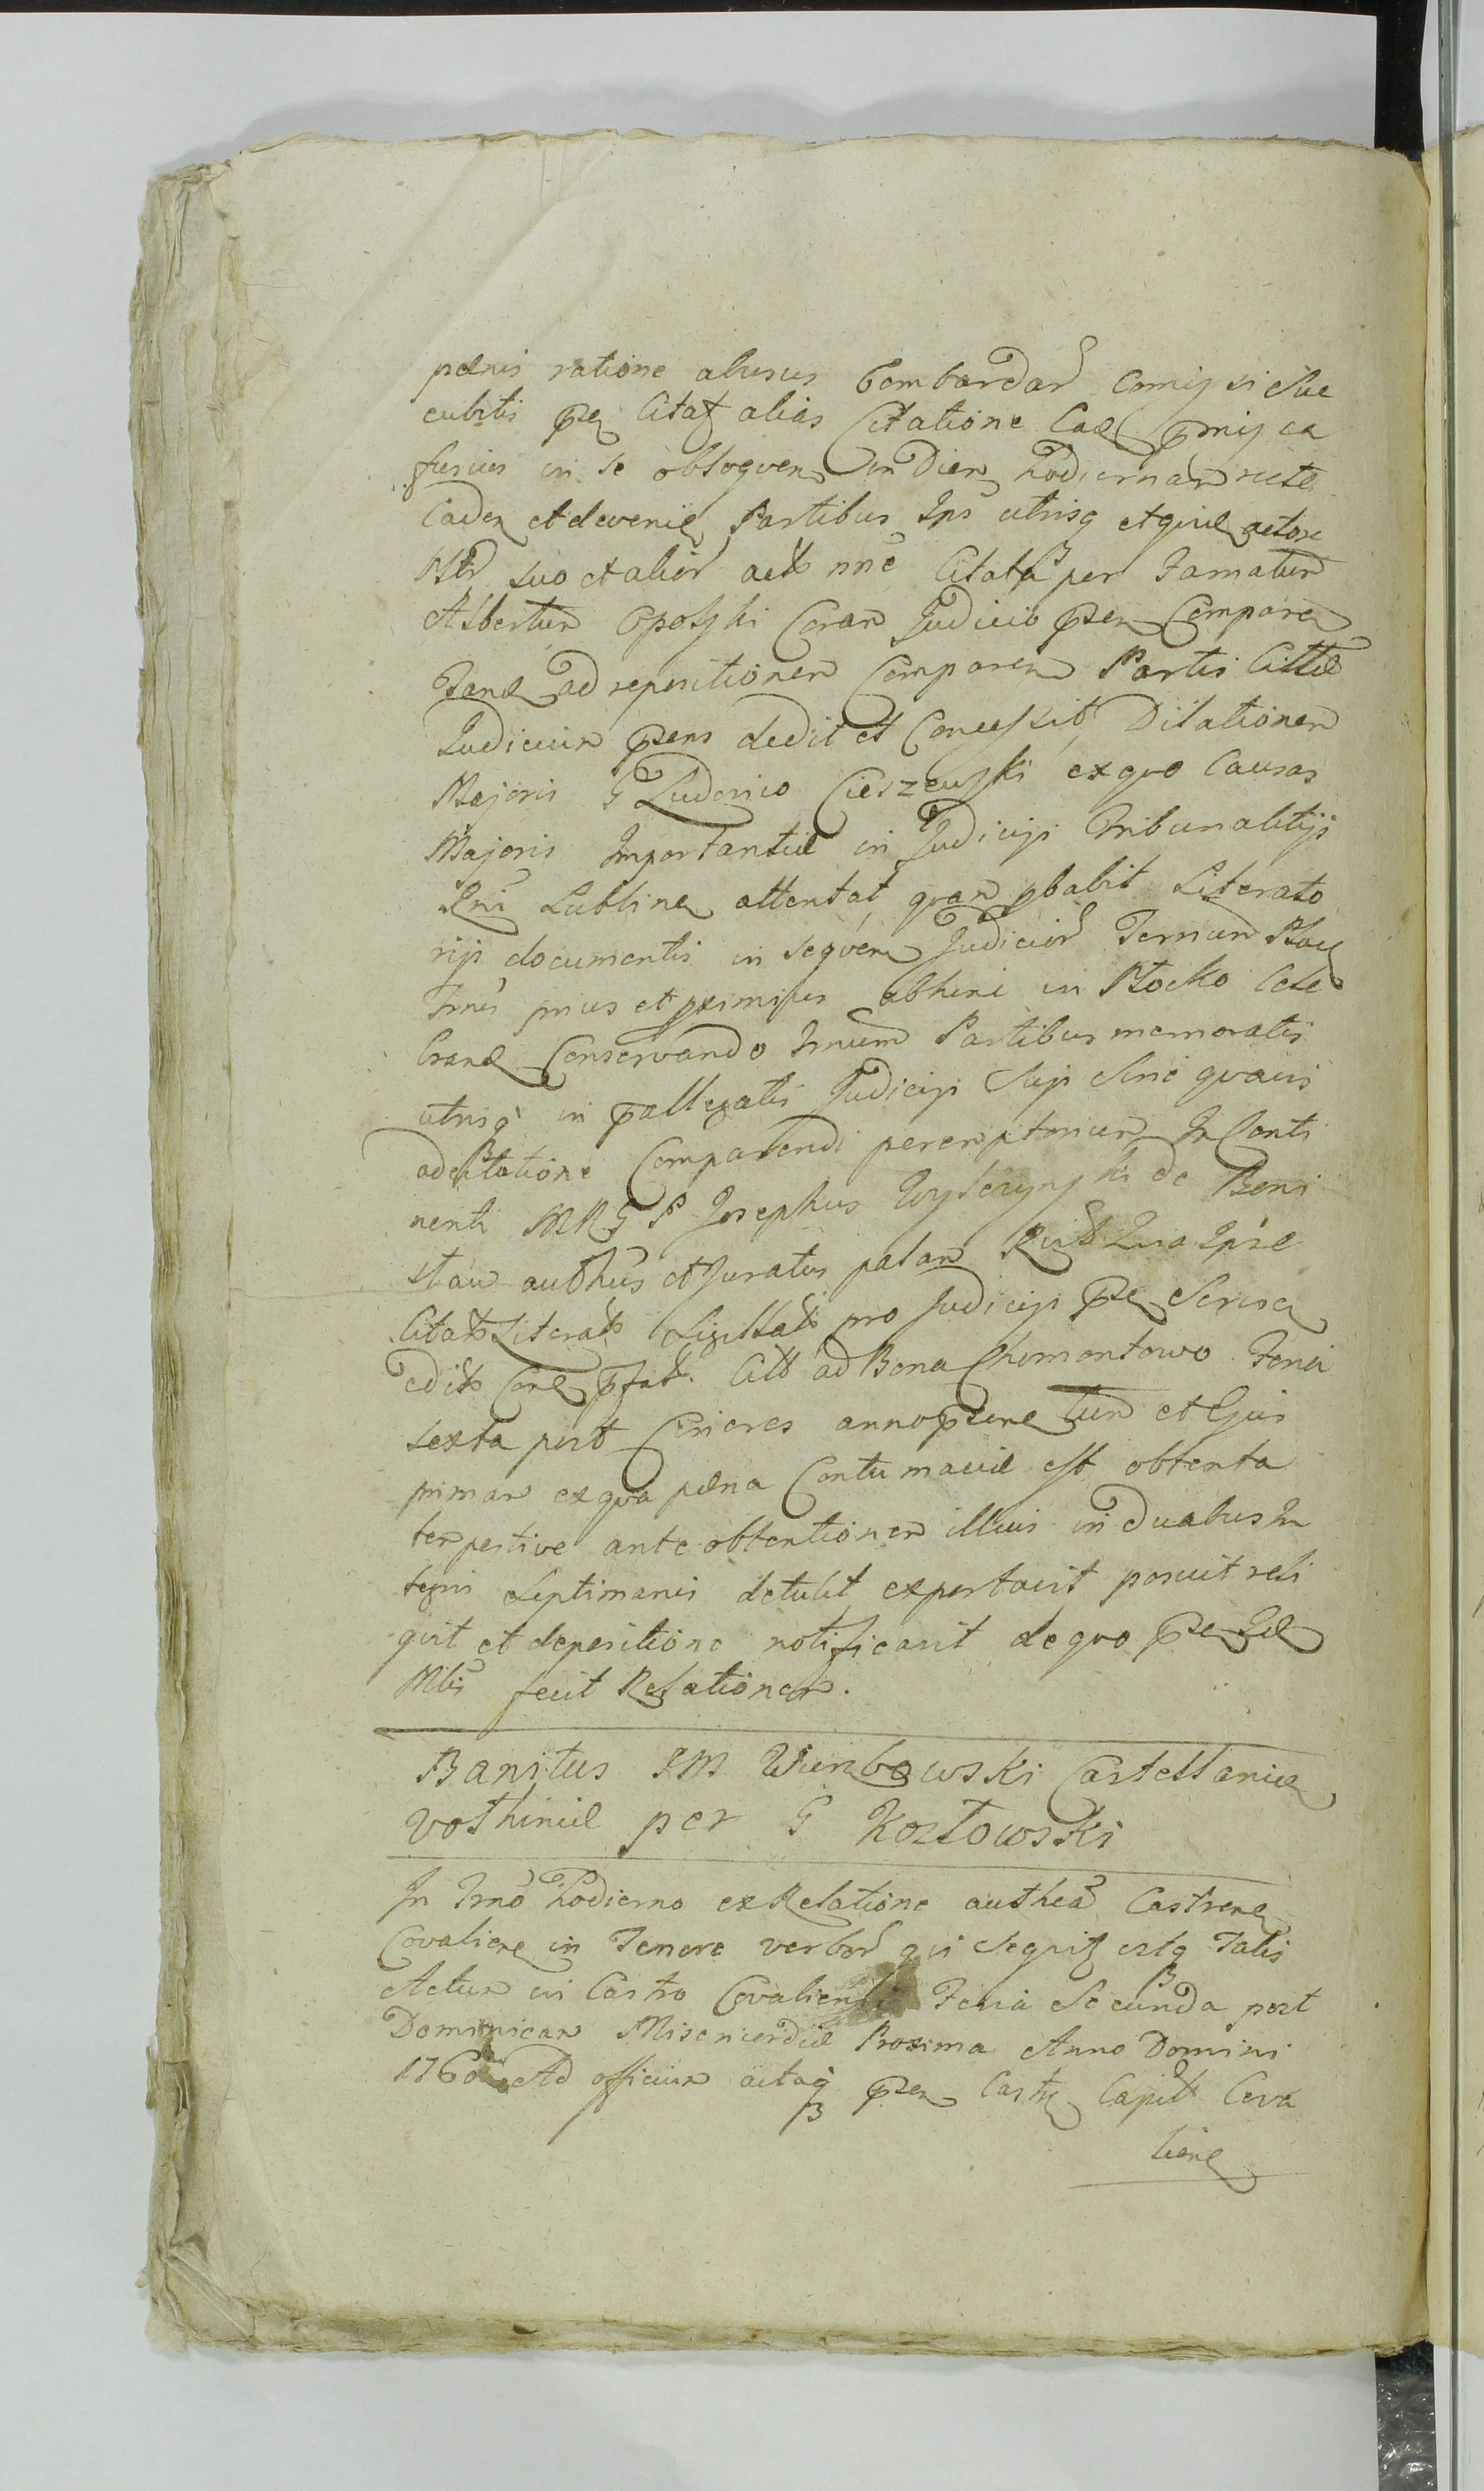 pænis ratione abusus bombardar comissi suc
cubitis pſe Citat alias Citatione Cas pmissa
fusius in se obloquen in Diem hodiernam recte
Caden et deveniẽ Partibus Ips utrisq et quiẽ actore
suo et alior act nnẽ Citata per Famatum
Albertum Opolski Coram Judicio pſen Comparen
Jane ad repositionem Comparen Partis Cittẽ
Judicium pſens dedit et Concessit Dilationem
Majoris G Ludovico Cieszewski ex quo Causas
Majoris Importantiæ in Judicijs Tribunalitijs
Rni Lublinen attentat quam pbabit Literato
rijs documentis in sequen Judicior Terrium Plocen
Trnis prius et pximius abhinc in Plocko Cele
bran Conservando Trnum Partibus memoratis
utrisq in pallegatis Judicijs Suis Sine quavis
adcitatione Comparendi peremptorium In Conti
nenti MRG P Josephus Wyszynski de Boni
slaw authus et Juratus palam Rcit Quia Ipse
Citat Literat Sigillat pro Judicijs pſe Scrisa
edit Con pfat. Citt ad Bona Chomentowo Feria
sexta post Cineres anno pſene tum et Ejus
primam ex qua pæna Contumaciæ est obtenta
tempestive ante obtentionem illius in duabus In
tegris Septimanis detulit exportavit posuit reli
quit et depositione notificavit de quo pſe
Mlis fecit Relationem.
Banitus IM Wierzbowski Castellanica
vołhiniæ per G Kozłowski
In Trno hodierno ex Relatione authea Castrene
Covaliene in Tenore verbor qui Sequit estq Talis
Actum in Castro Covaliensi Feria Secunda post
Dominicam Misericordiæ Proxima Anno Domini
1760 Ad officium actaq pſen Castr Capit Cova
liene